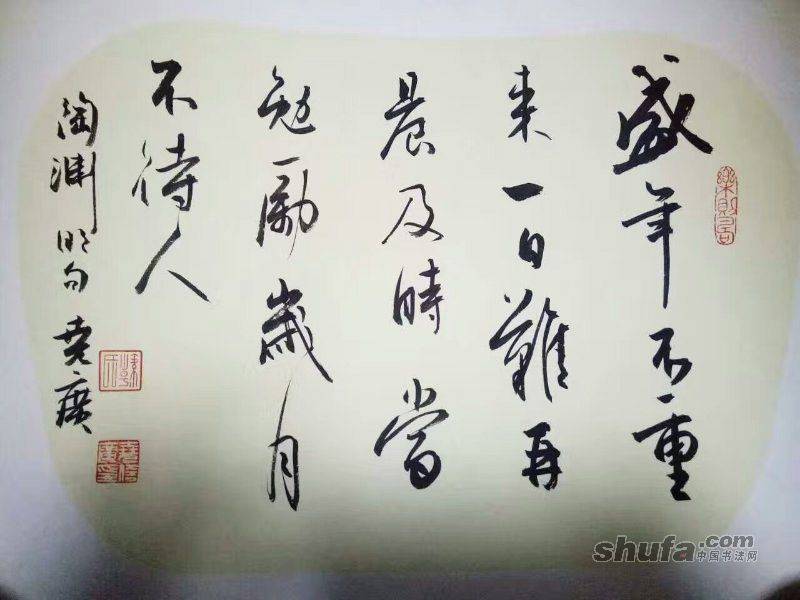 盛年不重
来一日難再
晨及時當
勉勵歲月
不待人
陶渊明句 堯廣
樂則居
shufa.com
中国书法网